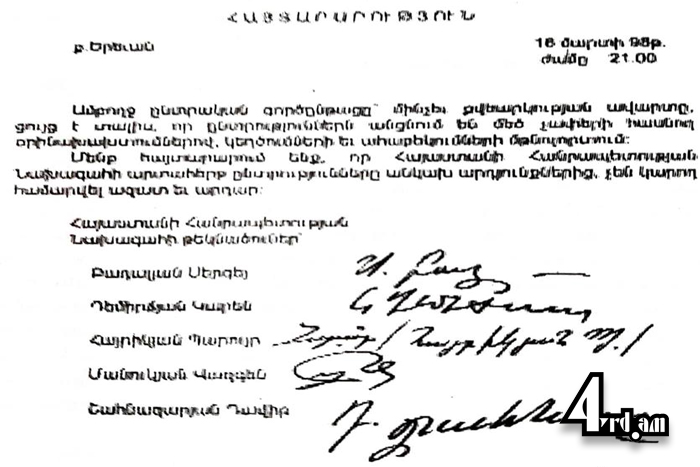 ՀԱՅՏԱՐԱՐՈՒԹՅՈՒՆ
ք.Երեւան 16 մարտի 98թ.
ժամը 21.00
Ամբողջ ընտրական գործընթացը՝ մինչեւ քվեարկության ավարտը,
ցույց է տալիս, որ ընտրություններն անցնում են մեծ չափերի հասնող
օրինախախտումներով, կեղծումների եւ ահաբեկումների մթնոլորտում:
Մենք հայտարարում ենք, որ Հայաստանի Հանրապետության
Նախագահի արտահերթ ընտրությունները անկախ արդյունքներից, չեն կարող
համարվել ազատ եւ արդար:
Հայաստանի Հանրապետության
Նախագահի թեկնածուներ՝
Բադալյան Սերգեյ
Դեմիրճյան Կարեն
Հայրիկյան Պարույր
Մանուկյան Վազգեն
Շահնազարյան Դավիթ
4rd.am